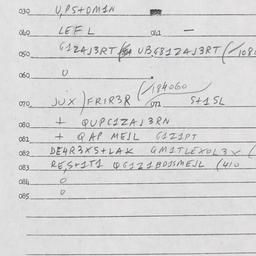 030 U,PS+DM1N
040 LEFL 041 —
050 G1ZAJ3RT UB681ZAJ3RT (/108
060 0
(/184060
070 JUX)FRIR3R 071 S+1SL
080 + QUPC1ZAJ3RN
081 + QAP MEJL G1Z1PT
082 DE4R3XS+LAK QM1TLEXOL3X (
083 RES+1T1 QG1Z1BOJSMEJL (410
084 0
085 0